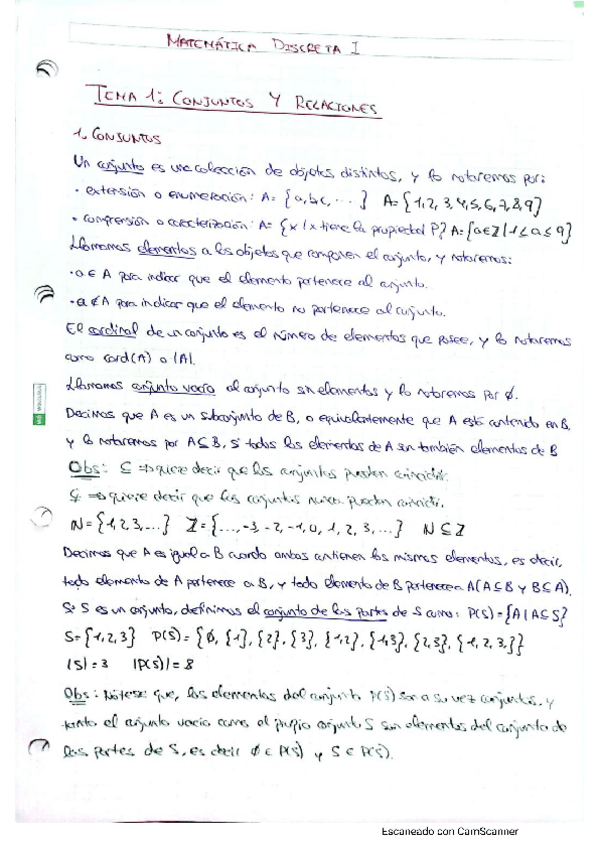 MATEMÁTICA DISCRETA I
TEMA 1: CONJUNTOS Y RELACIONES
1. CONJUNTOS
Un conjunto es una colección de objetos distintos, y lo notaremos por:
· extensión o enumeración: A = {a,b,c, ...} A = {1,2,3,4,5,6,7,8,9}
· comprensión o caracterización: A = {x/x tiene la propiedad P} A = {a∈Z/1≤a≤9}
Llamamos elementos a los objetos que componen el conjunto, y notaremos:
· a ∈ A para indicar que el elemento pertenece al conjunto.
· a ∉ A para indicar que el elemento no pertenece al conjunto.
El cardinal de un conjunto es el número de elementos que posee, y lo notaremos
como card(A) o |A|.
Llamamos conjunto vacío al conjunto sin elementos y lo notaremos por ∅.
Decimos que A es un subconjunto de B, o equivalentemente que A está contenido en B,
y lo notaremos por A⊆B, si todos los elementos de A son también elementos de B
Obs: ⊆ ⇒ quiere decir que los conjuntos pueden coincidir.
⊊ ⇒ quiere decir que los conjuntos nunca pueden coincidir.
N = {1,2,3,...} Z = {..., -3, -2, -1, 0, 1, 2, 3, ...} N ⊆ Z
Decimos que A es igual a B cuando ambos contienen los mismos elementos, es decir,
todo elemento de A pertenece a B, y todo elemento de B pertenece a A (A⊆B y B⊆A).
Si S es un conjunto, definimos el conjunto de las partes de S como: P(S) = {A | A⊆S}
S = {1,2,3} P(S) = {∅, {1}, {2}, {3}, {1,2}, {1,3}, {2,3}, {1,2,3,}}
|S| = 3 |P(S)| = 8
Obs: Nótese que, los elementos del conjunto P(S) son a su vez conjuntos, y
tanto el conjunto vacío como el propio conjunto S son elementos del conjunto de
las partes de S, es decir ∅ ∈ P(S) y S ∈ P(S).
Escaneado con CamScanner